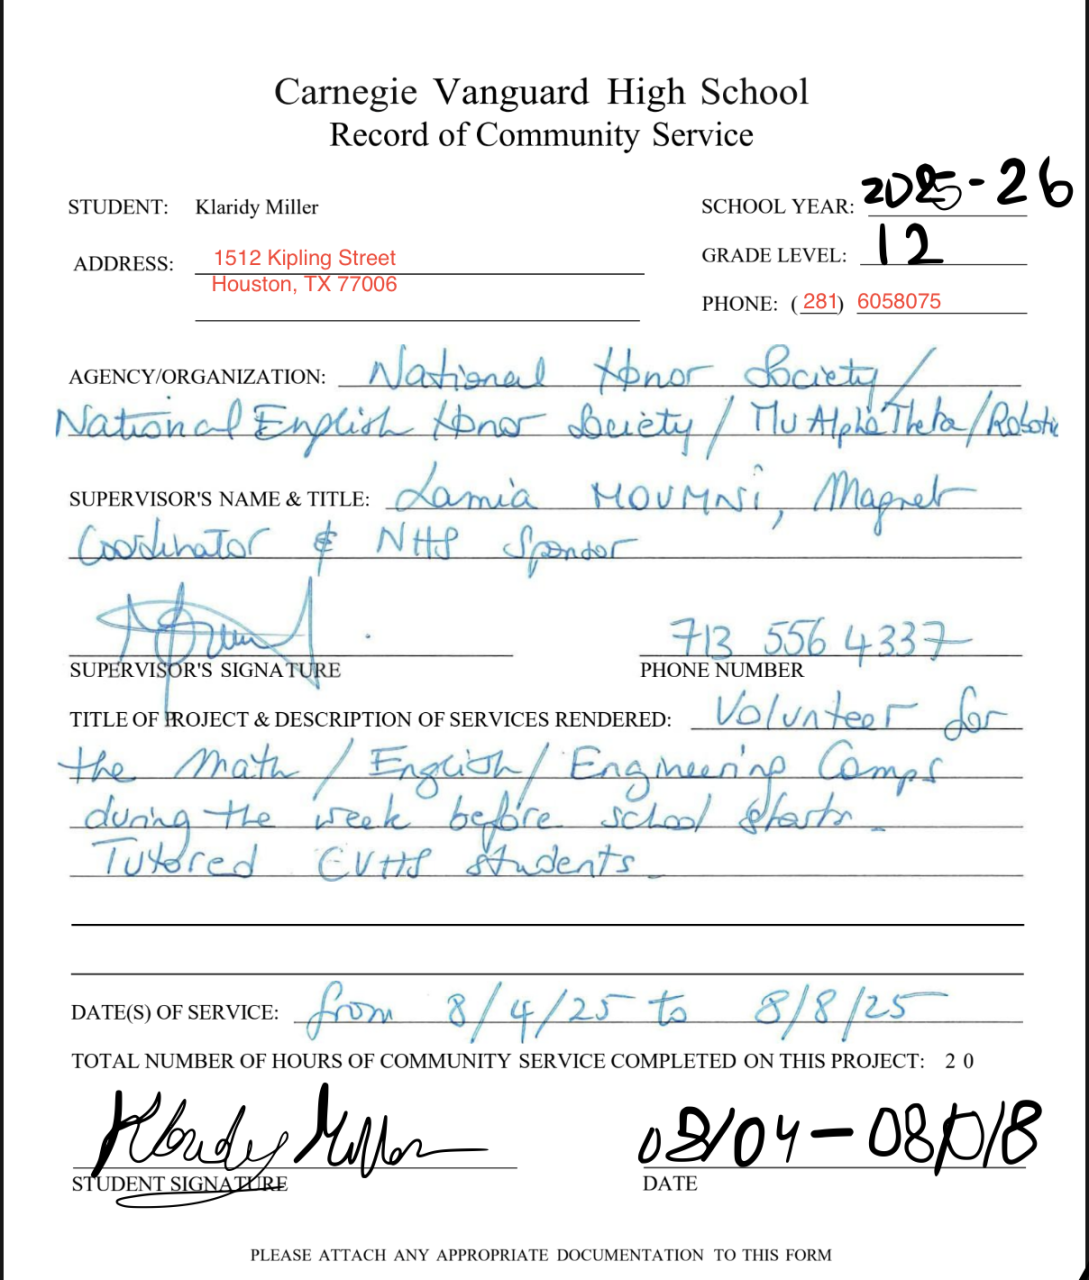 Carnegie Vanguard High School
Record of Community Service
STUDENT: Klaridy Miller
SCHOOL YEAR: 2025-26
ADDRESS: 1512 Kipling Street
Houston, TX 77006
GRADE LEVEL: 12
PHONE: (281) 6058075
AGENCY/ORGANIZATION: National Honor Society/
National English Honor Society / Mu Alpha Theta/Robotic
SUPERVISOR'S NAME & TITLE: Lamia MOUMNi, Magnet
Coordinator & NHS Sponsor
713 556 4337
SUPERVISOR'S SIGNATURE
PHONE NUMBER
TITLE OF PROJECT & DESCRIPTION OF SERVICES RENDERED: Volunteer for
the Math / English / Engineering Camps
during the week before school starts.
Tutored CVHS students.
DATE(S) OF SERVICE: from 8/4/25 to 8/8/25
TOTAL NUMBER OF HOURS OF COMMUNITY SERVICE COMPLETED ON THIS PROJECT: 20
Klaridy Miller
STUDENT SIGNATURE
DATE
PLEASE ATTACH ANY APPROPRIATE DOCUMENTATION TO THIS FORM